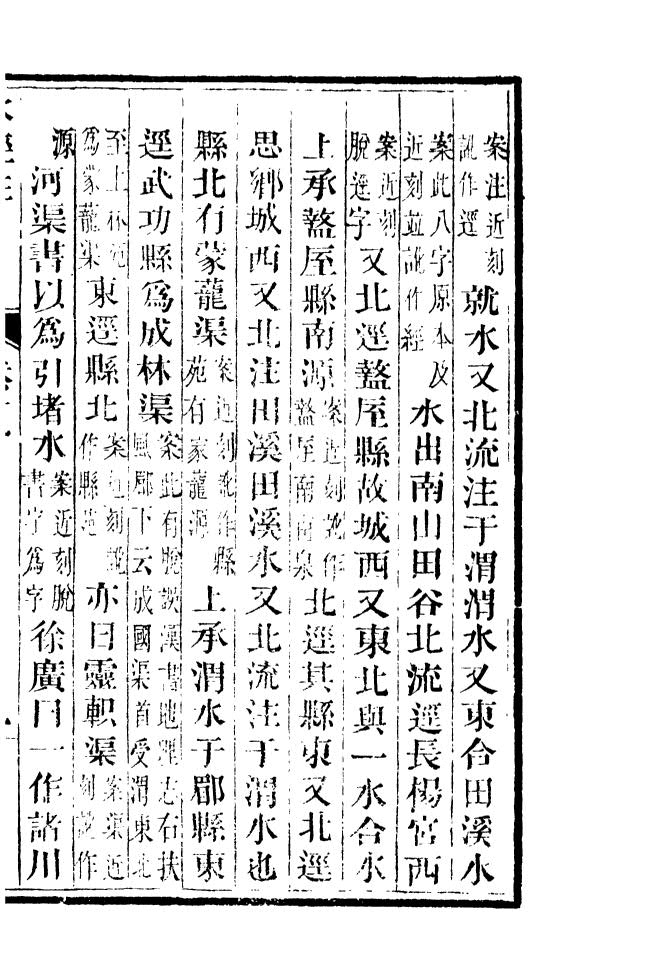 案注近刻訛作還就水又北流注于渭渭水又東合田溪水
案此八字原本及近刻並訛作經水出南山田谷北流逕長楊宮西
案近刻脫逕字又北逕盩厔縣故城西又東北與一水合水
上承盩厔縣南源案近刻訛作盩厔南南泉北逕其縣東又北逕
思鄉城西又北注田溪田溪水又北流注于渭水也
縣北有蒙蘢渠案近刻訛作縣苑有家蘢源上承渭水于郿縣東
逕武功縣爲成林渠案此有脫誤漢書地理志右扶風郿下云成國渠首受渭東北
至上林苑爲蒙蘢渠東逕縣北案近刻訛作縣逕亦曰靈軹渠案渠近刻訛作
源河渠書以爲引堵水案近刻脫書字爲字徐廣曰一作諸川